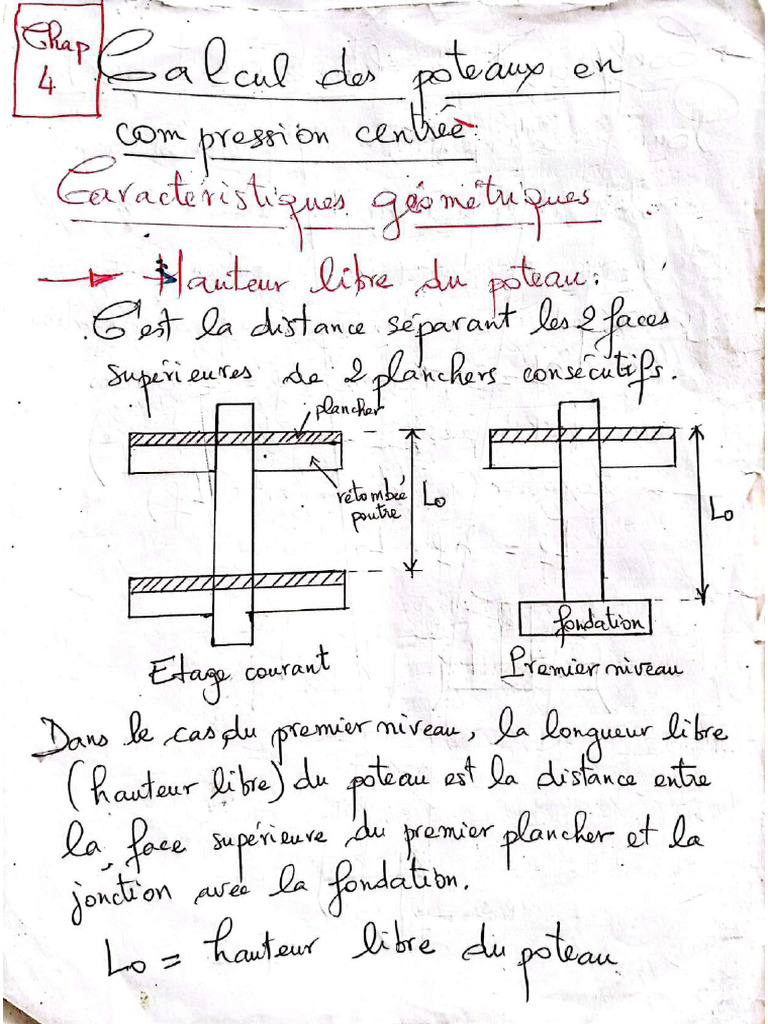 Chap
4
Calcul des poteaux en
compression centrée:
Caractéristiques géométriques
Hauteur libre du poteau:
C'est la distance séparant les 2 faces
supérieures de 2 planchers consécutifs.
plancher
retombée
poutre
Lo
Lo
fondation
Etage courant
Premier niveau
Dans le cas du premier niveau, la longueur libre
(hauteur libre) du poteau est la distance entre
la face supérieure du premier plancher et la
jonction avec la fondation.
Lo = hauteur libre du poteau